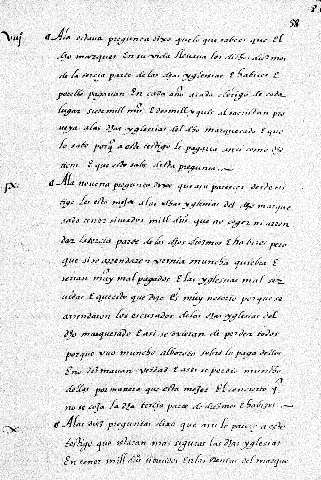 58
viij A la octava pregunta dixo que lo que sabe es que El
dho marques En su vida llevava los dichos diezmos
de la tercia parte de las dhas yglesias E havices E
por ello pagavan En cada año a cada clerigo de cada
lugar siete mill mrs E dos mill y que al sacristan pro
veya a las dhas yglesias del dho marquesado E que
lo sabe porque a este testigo le pagava ansi como dho
tiene E que esto sabe desta pregunta
ix A la novena pregunta dixo que a su parecer deste tes
tigo les esta mejor a las dhas yglesias del dho marque
sado tener situados mill ds que no coger ni arren
dar la tercia parte de los dhos diezmos E havices pero
que si se arrendaze vernia muncha quiebra E
serian muy mal pagados E las yglesias mal ser
vidas E que esto que dize es muy notorio porque se
arrendaron los escusados de las dhas yglesias del
dho marquesado E asi se ovieran de perder todos
porque uvo muncho alboroto sobre la paga dellos
En
verdad E asi se perdio muncho
dellos por manera que esta mejor El concierto q
no se coja la dha tercia parte de diezmos E havices
x A las diez preguntas dixo que asi le parece a este
testigo que estaran mas siguras las dhas yglesias
En tener mill ds situados En las Rentas del marque